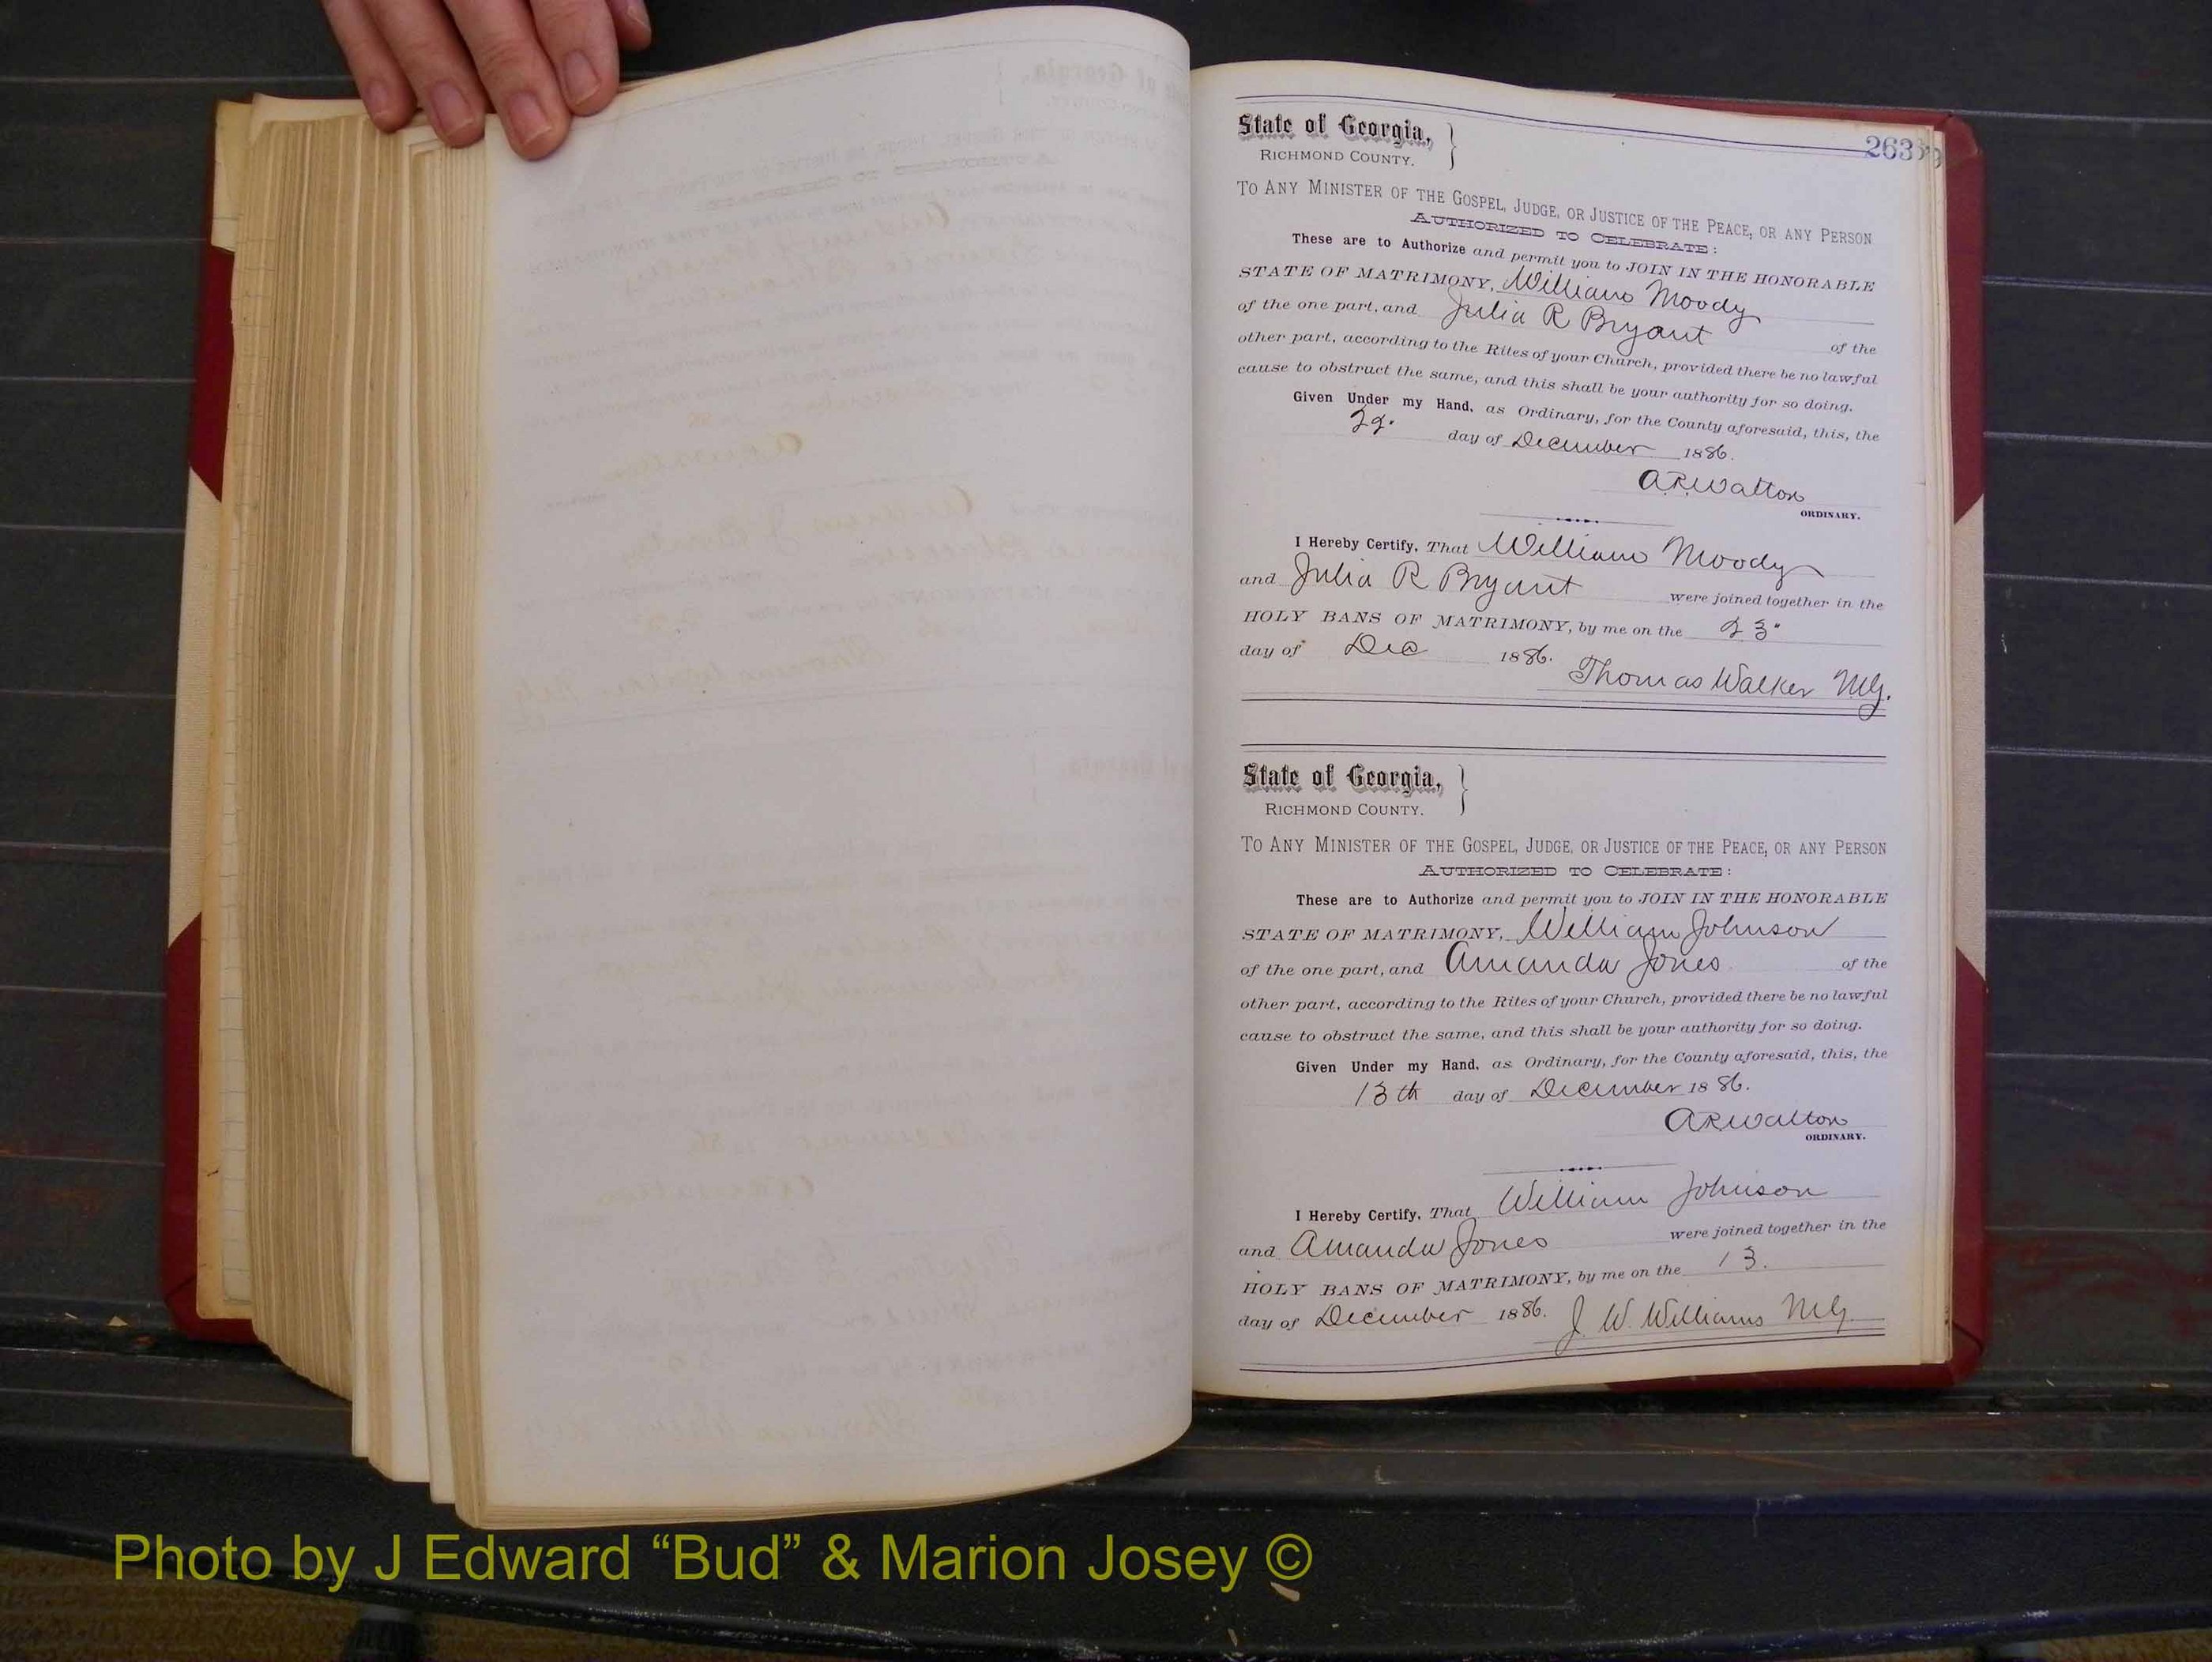 263
State of Georgia, }
RICHMOND COUNTY.
TO ANY MINISTER OF THE GOSPEL, JUDGE, OR JUSTICE OF THE PEACE, OR ANY PERSON
AUTHORIZED TO CELEBRATE:
These are to Authorize and permit you to JOIN IN THE HONORABLE
STATE OF MATRIMONY, William Moody
of the one part, and Julia R Bryant of the
other part, according to the Rites of your Church, provided there be no lawful
cause to obstruct the same, and this shall be your authority for so doing.
Given Under my Hand, as Ordinary, for the County aforesaid, this, the
22. day of December 1886.
A.R. Walton
ORDINARY.
I Hereby Certify, That William Moody
and Julia R Bryant were joined together in the
HOLY BANS OF MATRIMONY, by me on the 23.
day of Dec 1886. Thomas Walker M.G.
State of Georgia, }
RICHMOND COUNTY.
TO ANY MINISTER OF THE GOSPEL, JUDGE, OR JUSTICE OF THE PEACE, OR ANY PERSON
AUTHORIZED TO CELEBRATE:
These are to Authorize and permit you to JOIN IN THE HONORABLE
STATE OF MATRIMONY, William Johnson
of the one part, and Amanda Jones of the
other part, according to the Rites of your Church, provided there be no lawful
cause to obstruct the same, and this shall be your authority for so doing.
Given Under my Hand, as Ordinary, for the County aforesaid, this, the
13th day of December 1886.
A R Walton
ORDINARY.
I Hereby Certify, That William Johnson
and Amanda Jones were joined together in the
HOLY BANS OF MATRIMONY, by me on the 13.
day of December 1886. J. W. Williams M.G.
Photo by J Edward “Bud” & Marion Josey ©